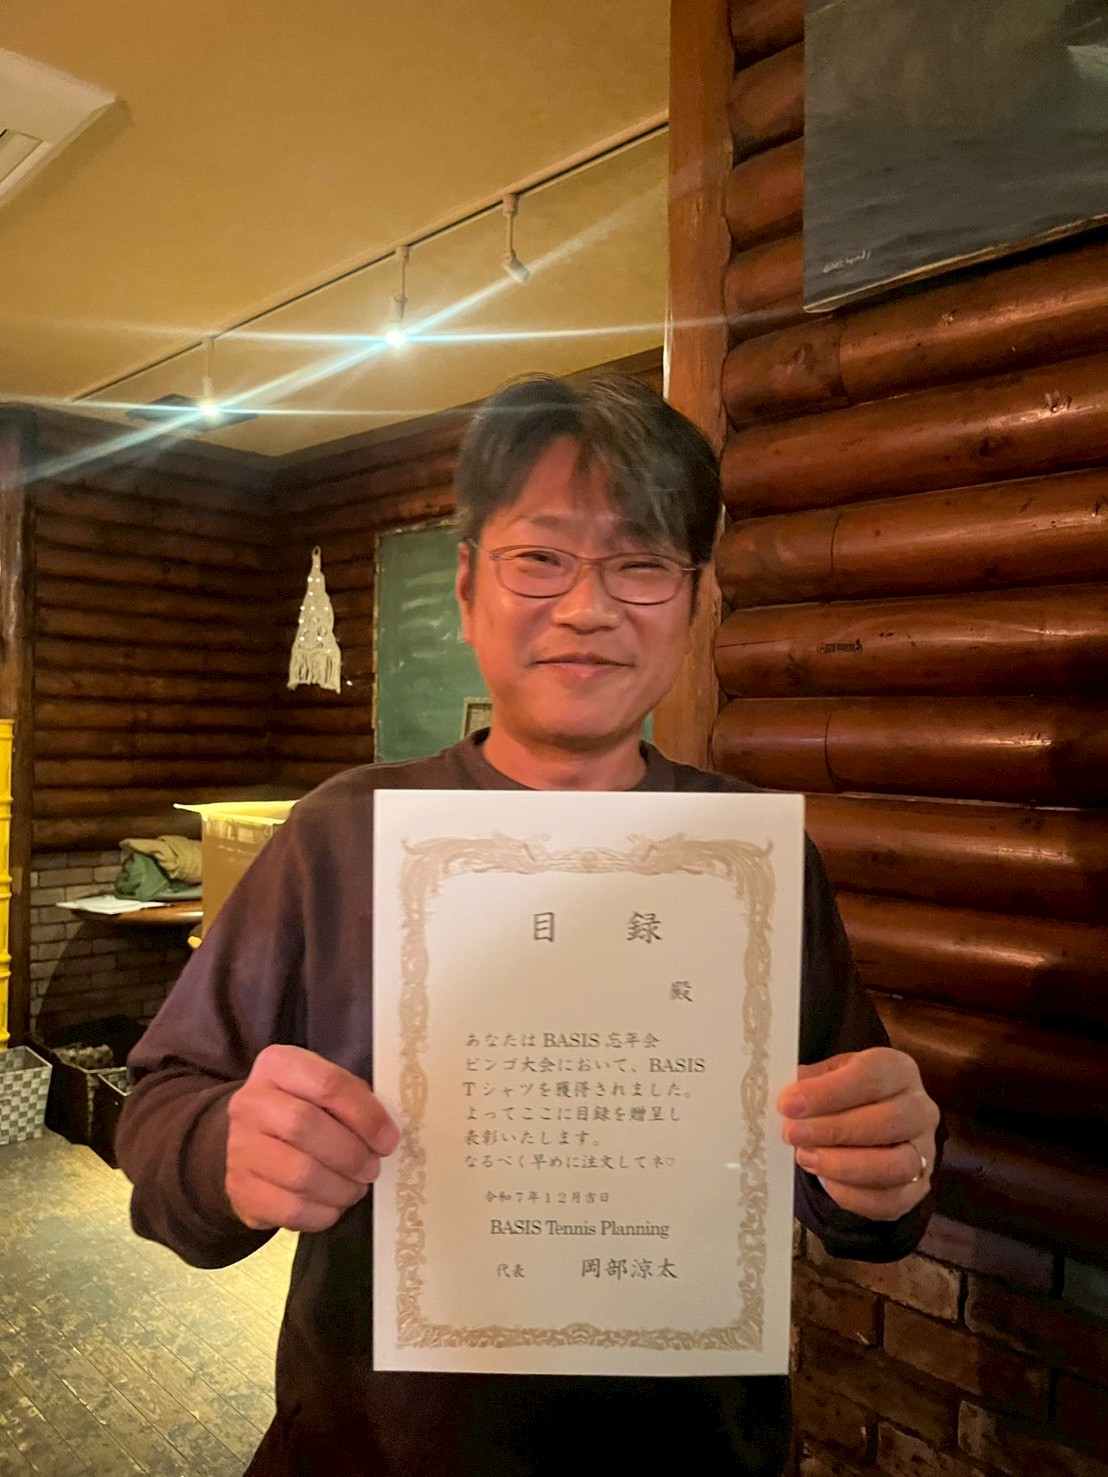 目 録
殿
あなたは BASIS 忘年会
ビンゴ大会において、BASIS
T シャツを獲得されました。
よってここに目録を贈呈し
表彰いたします。
なるべく早めに注文してネ♡
令和７年１２月吉日
BASIS Tennis Planning
代表 岡部涼太